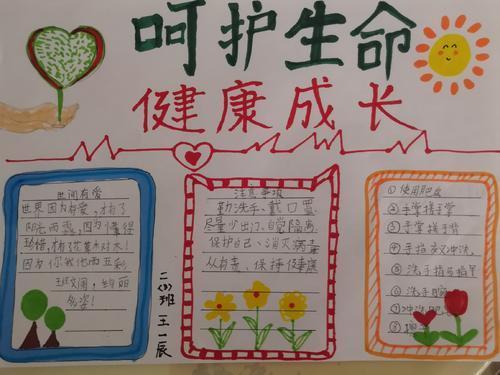 呵护生命
健康成长
世间有爱
世界因为有爱,才有了
阳光雨露,因为懂得
珍惜,才有花草树木!
因为你我他而五彩
多姿!
注意事项
勤洗手、戴口罩
尽量少出门、自觉隔离
保护自己、消灭病毒
从有我、保持健康
①使用肥皂
②手掌搓手掌
③手掌搓手背
④手指交叉冲洗
⑤洗手指
⑥洗手腕
⑦冲洗
⑧
二(3)班 王一辰